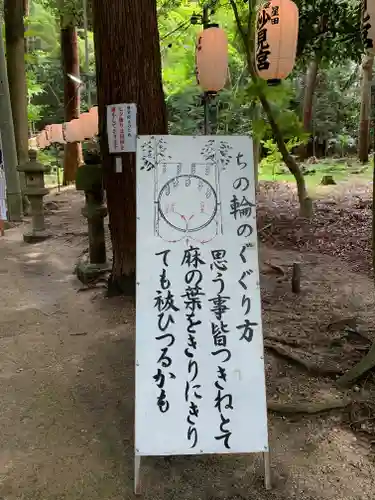 ちの輪のくぐり方
思う事皆つきねとて
麻の葉をきりにきり
ても祓ひつるかも
星田
妙見宮